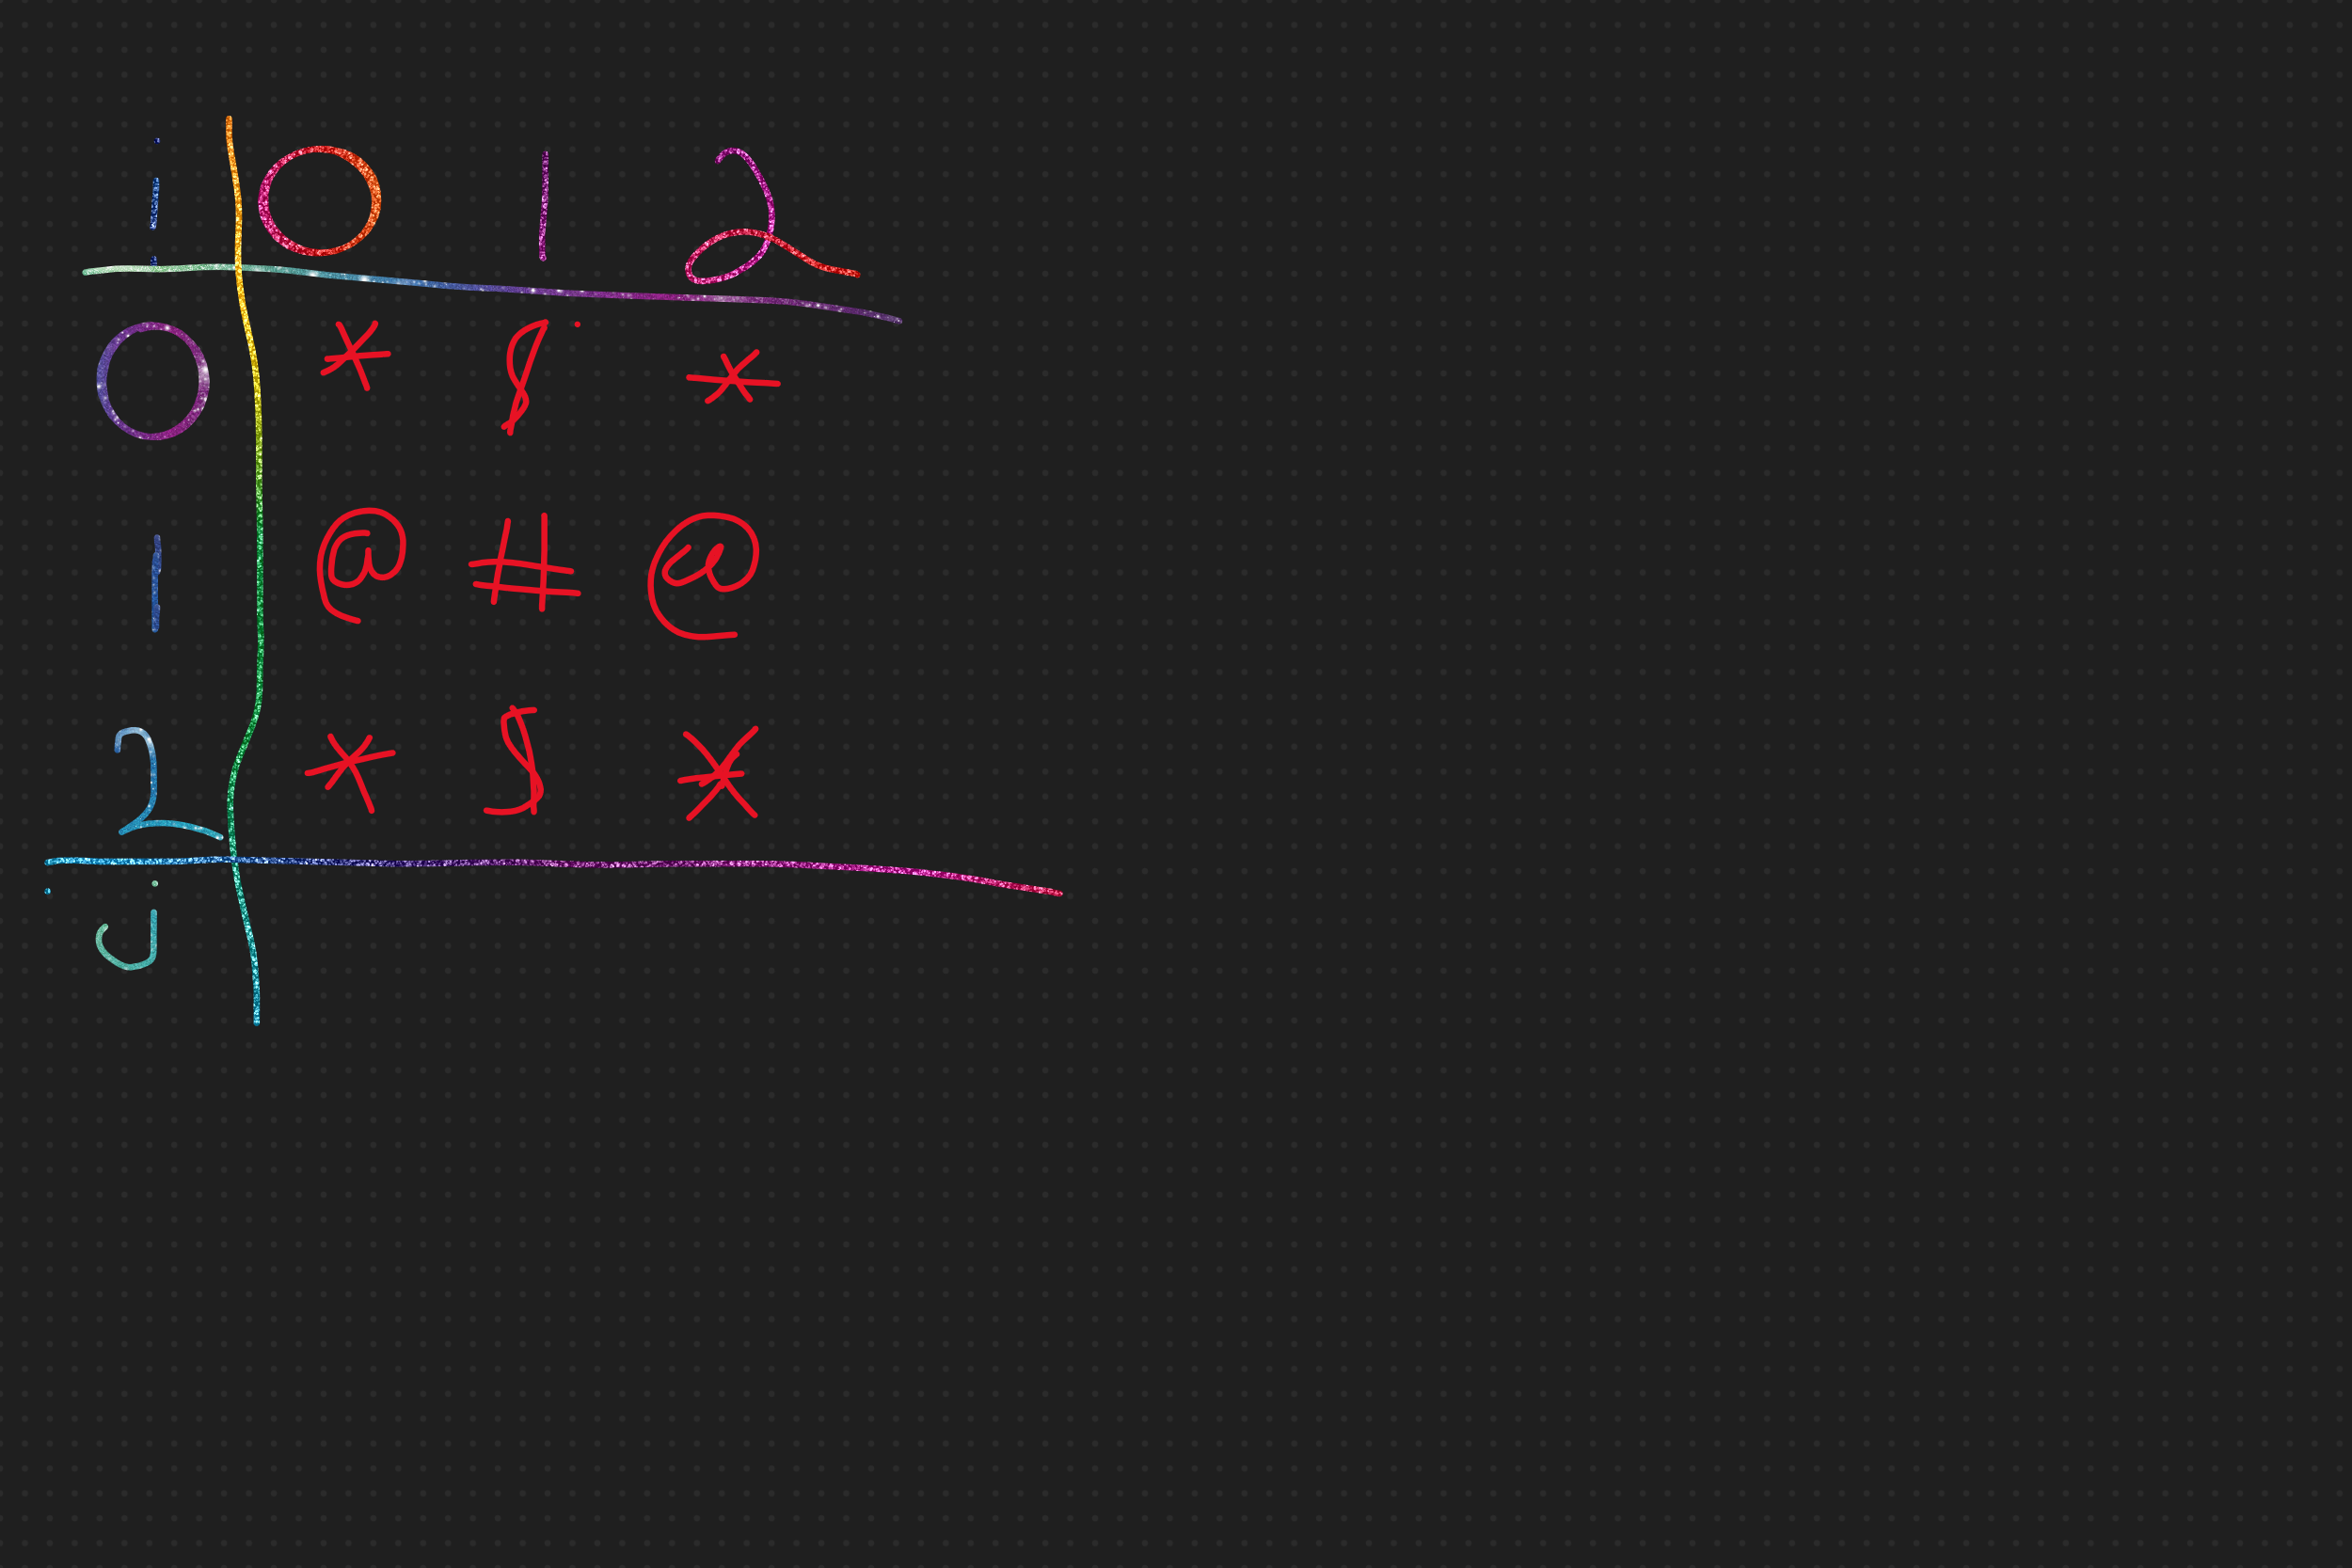 i 0 1 2
0 * $ *
1 @ # @
2 * $ *
j